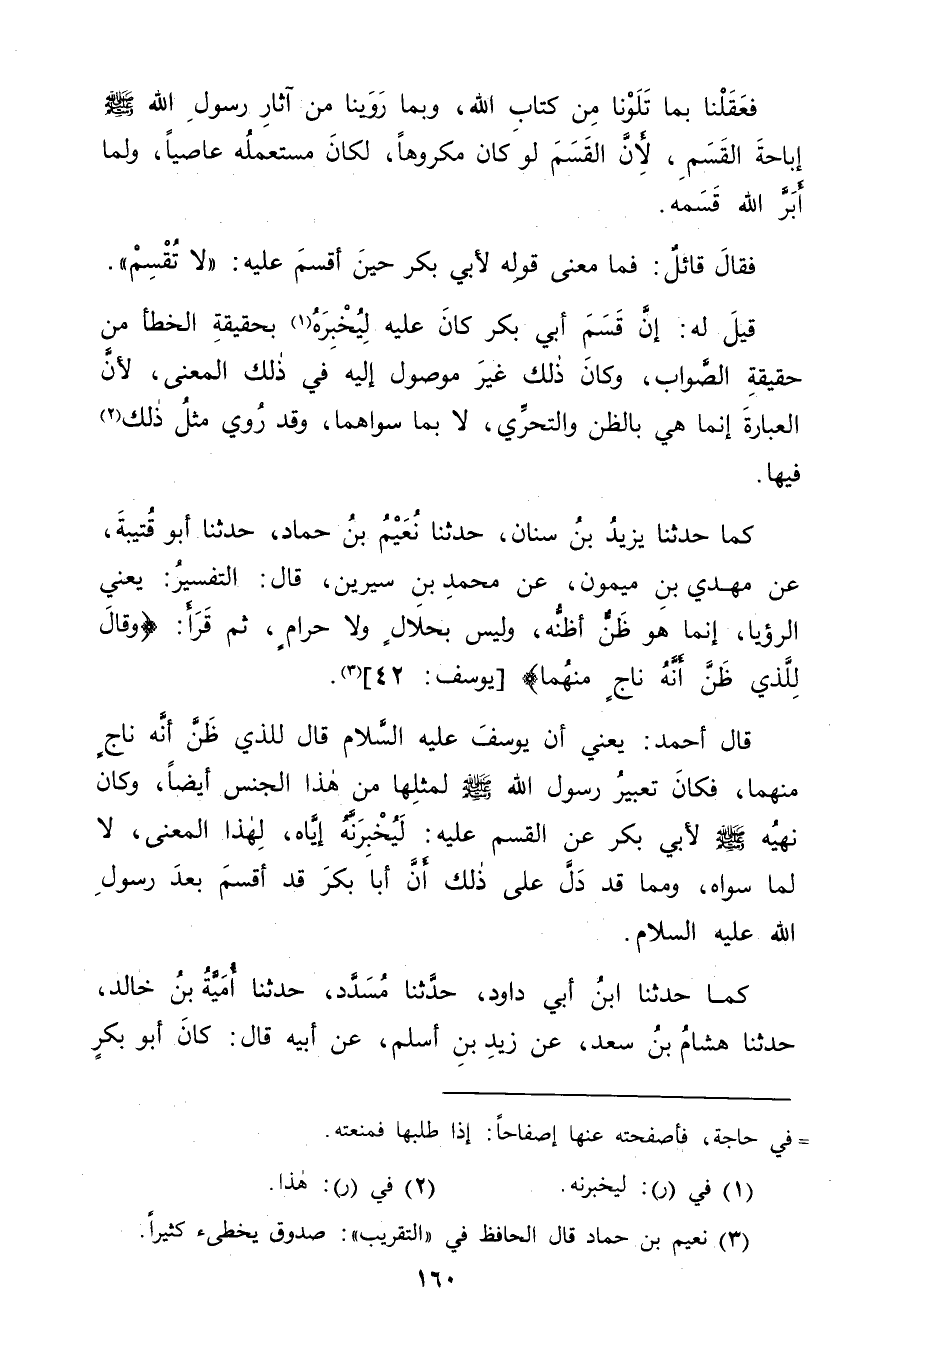 فعَقَلْنا بما تَلَوْنا مِن كتابِ الله، وبما رَوَينا من آثارِ رسولِ الله ﷺ
إباحةَ القَسَمِ، لأَنَّ القَسَمَ لو كان مكروهاً، لكانَ مستعملُه عاصياً، ولما
أَبَرَّ الله قَسَمه.
فقالَ قائلٌ: فما معنى قوله لأبي بكر حينَ أقسمَ عليه: «لا تُقْسِمْ».
قيلَ له: إنَّ قَسَمَ أبي بكر كانَ عليه لِيُخْبِرَهُ(١) بحقيقةِ الخطأ من
حقيقةِ الصَّواب، وكانَ ذٰلك غيرَ موصول إليه في ذٰلك المعنى، لأنَّ
العبارةَ إنما هي بالظن والتحرِّي، لا بما سواهما، وقد رُوي مثلُ ذٰلك(٢)
فيها.
كما حدثنا يزيدُ بنُ سنان، حدثنا نُعَيْمُ بنُ حماد، حدثنا أبو قُتيبةَ،
عن مهدي بنِ ميمون، عن محمدِ بن سيرين، قال: التفسيرُ: يعني
الرؤيا، إنما هو ظَنٌّ أظنُّه، وليس بحلالٍ ولا حرامٍ، ثم قَرَأَ: ﴿وقالَ
لِلَّذي ظَنَّ أَنَّهُ ناجٍ منهُما﴾ [يوسف: ٤٢](٣).
قال أحمد: يعني أن يوسفَ عليه السَّلام قال للذي ظَنَّ أنَّه ناجٍ
منهما، فكانَ تعبيرُ رسول الله ﷺ لمثلِها من هٰذا الجنس أيضاً، وكان
نهيُه ﷺ لأبي بكر عن القسم عليه: لَيُخْبِرَنَّهُ إيَّاه، لِهٰذا المعنى، لا
لما سواه، ومما قد دَلَّ على ذٰلك أَنَّ أبا بكرَ قد أقسمَ بعدَ رسولِ
الله عليه السلام.
كما حدثنا ابنُ أبي داود، حدَّثنا مُسَدَّد، حدثنا أُمَيَّةُ بنُ خالد،
حدثنا هشامُ بنُ سعد، عن زيدِ بنِ أسلم، عن أبيه قال: كانَ أبو بكرٍ
= في حاجة، فأصفحته عنها إصفاحاً: إذا طلبها فمنعته.
(١) في (ر): ليخبرنه. (٢) في (ر): هٰذا.
(٣) نعيم بن حماد قال الحافظ في «التقريب»: صدوق يخطىء كثيراً.
١٦٠